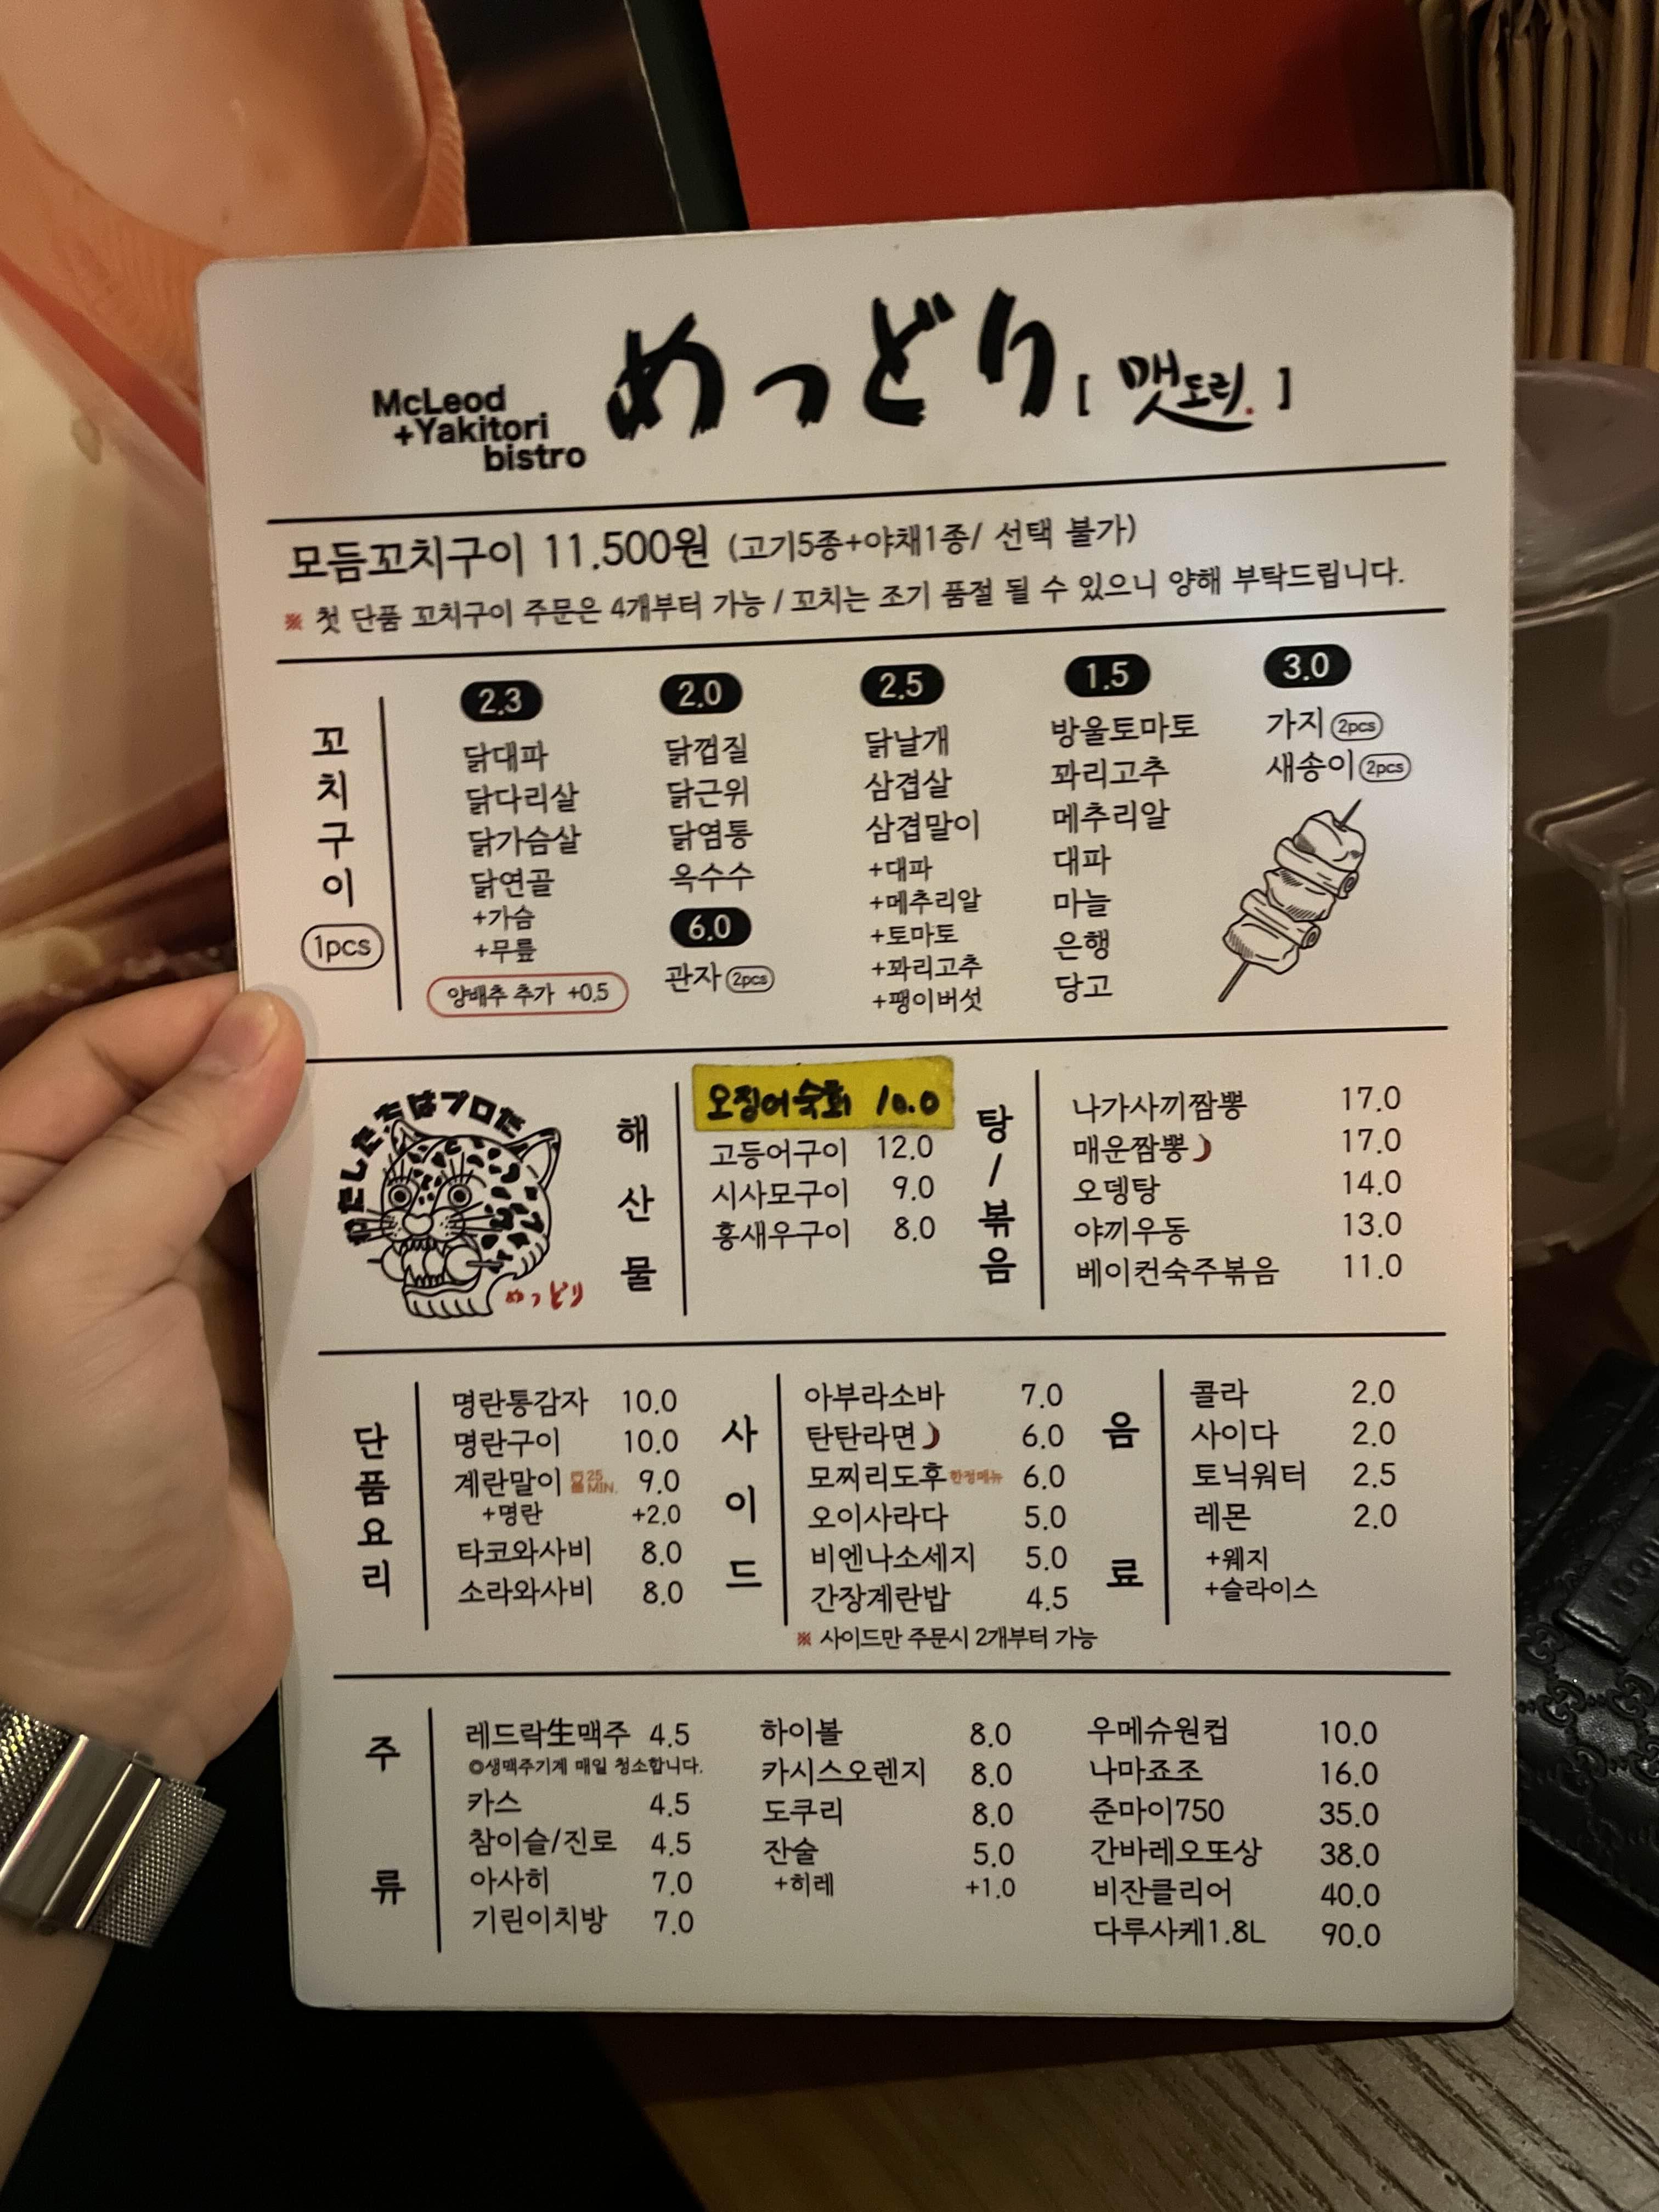 McLeod
+Yakitori
bistro
めっどり [ 맷도리. ]
모듬꼬치구이 11.500원 (고기5종+야채1종/ 선택 불가)
※ 첫 단품 꼬치구이 주문은 4개부터 가능 / 꼬치는 조기 품절 될 수 있으니 양해 부탁드립니다.
꼬치구이
1pcs
2.3
닭대파
닭다리살
닭가슴살
닭연골
+가슴
+무릎
양배추 추가 +0.5
2.0
닭껍질
닭근위
닭염통
옥수수
6.0
관자 2pcs
2.5
닭날개
삼겹살
삼겹말이
+대파
+메추리알
+토마토
+꽈리고추
+팽이버섯
1.5
방울토마토
꽈리고추
메추리알
대파
마늘
은행
당고
3.0
가지 2pcs
새송이 2pcs
わたしたちはプロだ
めっどり
해산물
오징어숙회 10.0
고등어구이 12.0
시사모구이 9.0
홍새우구이 8.0
탕/볶음
나가사끼짬뽕 17.0
매운짬뽕 17.0
오뎅탕 14.0
야끼우동 13.0
베이컨숙주볶음 11.0
단품요리
명란통감자 10.0
명란구이 10.0
계란말이 25 MIN. 9.0
+명란 +2.0
타코와사비 8.0
소라와사비 8.0
사이드
아부라소바 7.0
탄탄라면 6.0
모찌리도후 한정메뉴 6.0
오이사라다 5.0
비엔나소세지 5.0
간장계란밥 4.5
※ 사이드만 주문시 2개부터 가능
음료
콜라 2.0
사이다 2.0
토닉워터 2.5
레몬 2.0
+웨지
+슬라이스
주류
레드락生맥주 4.5
◎생맥주기계 매일 청소합니다.
카스 4.5
참이슬/진로 4.5
아사히 7.0
기린이치방 7.0
하이볼 8.0
카시스오렌지 8.0
도쿠리 8.0
잔술 5.0
+히레 +1.0
우메슈원컵 10.0
나마죠조 16.0
준마이750 35.0
간바레오또상 38.0
비잔클리어 40.0
다루사케1.8L 90.0